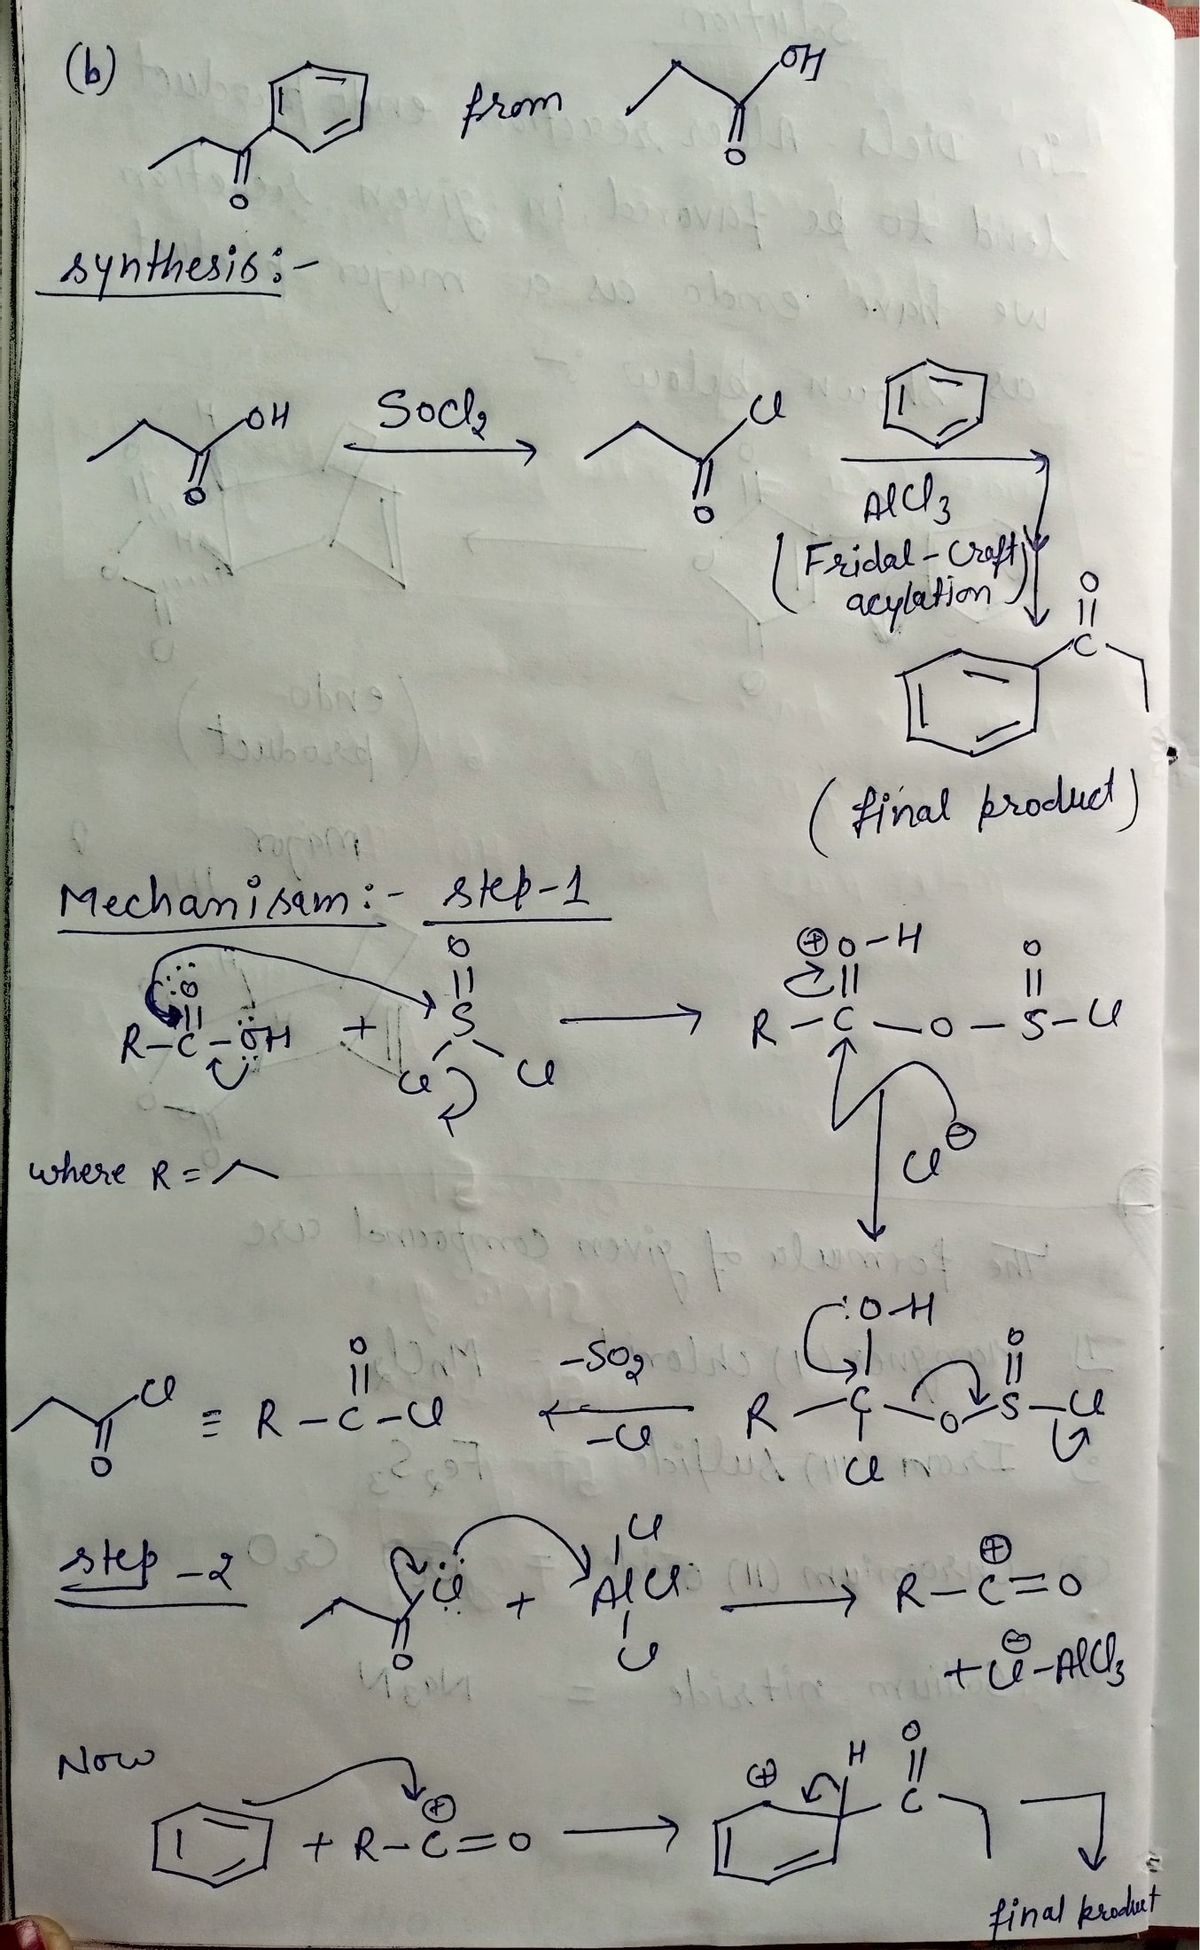 (b)
from
OH
O
O
synthesis:-
OH
O
SOCl2
Cl
O
AlCl3
(Fridal-Craft
acylation)
O
C
(final product)
Mechanisam:- step-1
O
R-C-OH + S
O
Cl Cl
⊕O-H
O
R-C-O-S-Cl
Cl⊖
where R=
:O-H
O
R-C-O-S-Cl
Cl
-SO2
-Cl
Cl
O
≡ R-C-Cl
O
step-2
Cl
O
+ AlCl
Cl
Cl
R-C=O
⊕
+ Cl-AlCl3
⊖
Now
+ R-C=O
⊕
⊕
H
O
C
final product